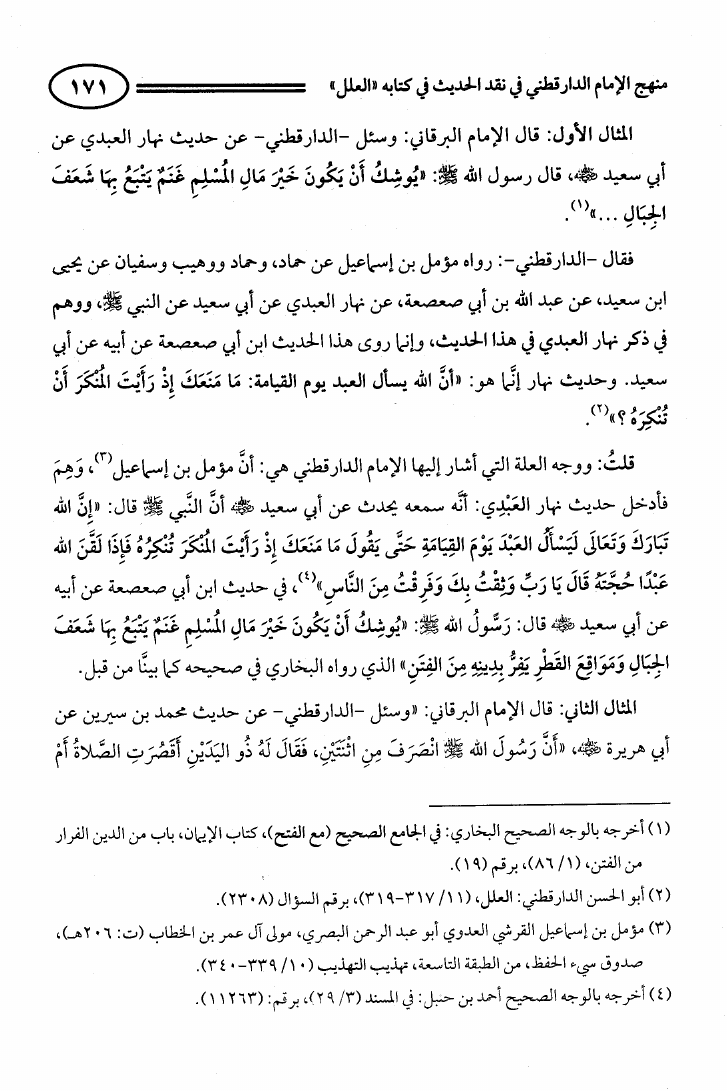 منهج الإمام الدارقطني في نقد الحديث في كتابه «العلل» ١٧١
المثال الأول: قال الإمام البرقاني: وسئل -الدارقطني- عن حديث نهار العبدي عن
أبي سعيد ﵁، قال رسول الله ﷺ: «يُوشِكُ أَنْ يَكُونَ خَيْرَ مَالِ المُسْلِمِ غَنَمٌ يَتْبَعُ بِهَا شَعَفَ
الجِبَالِ ...»(١).
فقال -الدارقطني-: رواه مؤمل بن إسماعيل عن حماد، وحماد ووهيب وسفيان عن يحيى
ابن سعيد، عن عبد الله بن أبي صعصعة، عن نهار العبدي عن أبي سعيد عن النبي ﷺ، ووهم
في ذكر نهار العبدي في هذا الحديث، وإنما روى هذا الحديث ابن أبي صعصعة عن أبيه عن أبي
سعيد. وحديث نهار إنَّما هو: «أنَّ الله يسأل العبد يوم القيامة: مَا مَنَعَكَ إِذْ رَأَيْتَ المُنْكَرَ أَنْ
تُنْكِرَهُ ؟»(٢).
قلتُ: ووجه العلة التي أشار إليها الإمام الدارقطني هي: أنَّ مؤمل بن إسماعيل(٣)، وَهِمَ
فأدخل حديث نهار العَبْدِي: أنَّه سمعه يحدث عن أبي سعيد ﵁ أنَّ النَّبي ﷺ قال: «إِنَّ الله
تَبَارَكَ وَتَعَالَى لَيَسْأَلُ العَبْدَ يَوْمَ القِيَامَةِ حَتَّى يَقُولَ مَا مَنَعَكَ إِذْ رَأَيْتَ المُنْكَرَ تُنْكِرُهُ فَإِذَا لَقَّنَ الله
عَبْدًا حُجَّتَهُ قَالَ يَا رَبِّ وَثِقْتُ بِكَ وَفَرِقْتُ مِنَ النَّاسِ»(٤)، في حديث ابن أبي صعصعة عن أبيه
عن أبي سعيد ﵁ قال: رَسُولُ الله ﷺ: «يُوشِكُ أَنْ يَكُونَ خَيْرَ مَالِ المُسْلِمِ غَنَمٌ يَتْبَعُ بِهَا شَعَفَ
الجِبَالِ وَمَوَاقِعَ القَطْرِ يَفِرُّ بِدِينِهِ مِنَ الفِتَنِ» الذي رواه البخاري في صحيحه كما بينَّا من قبل.
المثال الثاني: قال الإمام البرقاني: «وسئل -الدارقطني- عن حديث محمد بن سيرين عن
أبي هريرة ﵁، «أَنَّ رَسُولَ الله ﷺ انْصَرَفَ مِنِ اثْنَتَيْنِ، فَقَالَ لَهُ ذُو اليَدَيْنِ أَقَصُرَتِ الصَّلاَةُ أَمْ
(١) أخرجه بالوجه الصحيح البخاري: في الجامع الصحيح (مع الفتح)، كتاب الإيمان، باب من الدين الفرار
من الفتن، (١/ ٨٦)، برقم (١٩).
(٢) أبو الحسن الدارقطني: العلل، (١١/ ٣١٧-٣١٩)، برقم السؤال (٢٣٠٨).
(٣) مؤمل بن إسماعيل القرشي العدوي أبو عبد الرحمن البصري، مولى آل عمر بن الخطاب (ت: ٢٠٦هـ)،
صدوق سيء الحفظ، من الطبقة التاسعة، تهذيب التهذيب (١٠/ ٣٣٩-٣٤٠).
(٤) أخرجه بالوجه الصحيح أحمد بن حنبل: في المسند (٣/ ٢٩)، برقم: (١١٢٦٣).